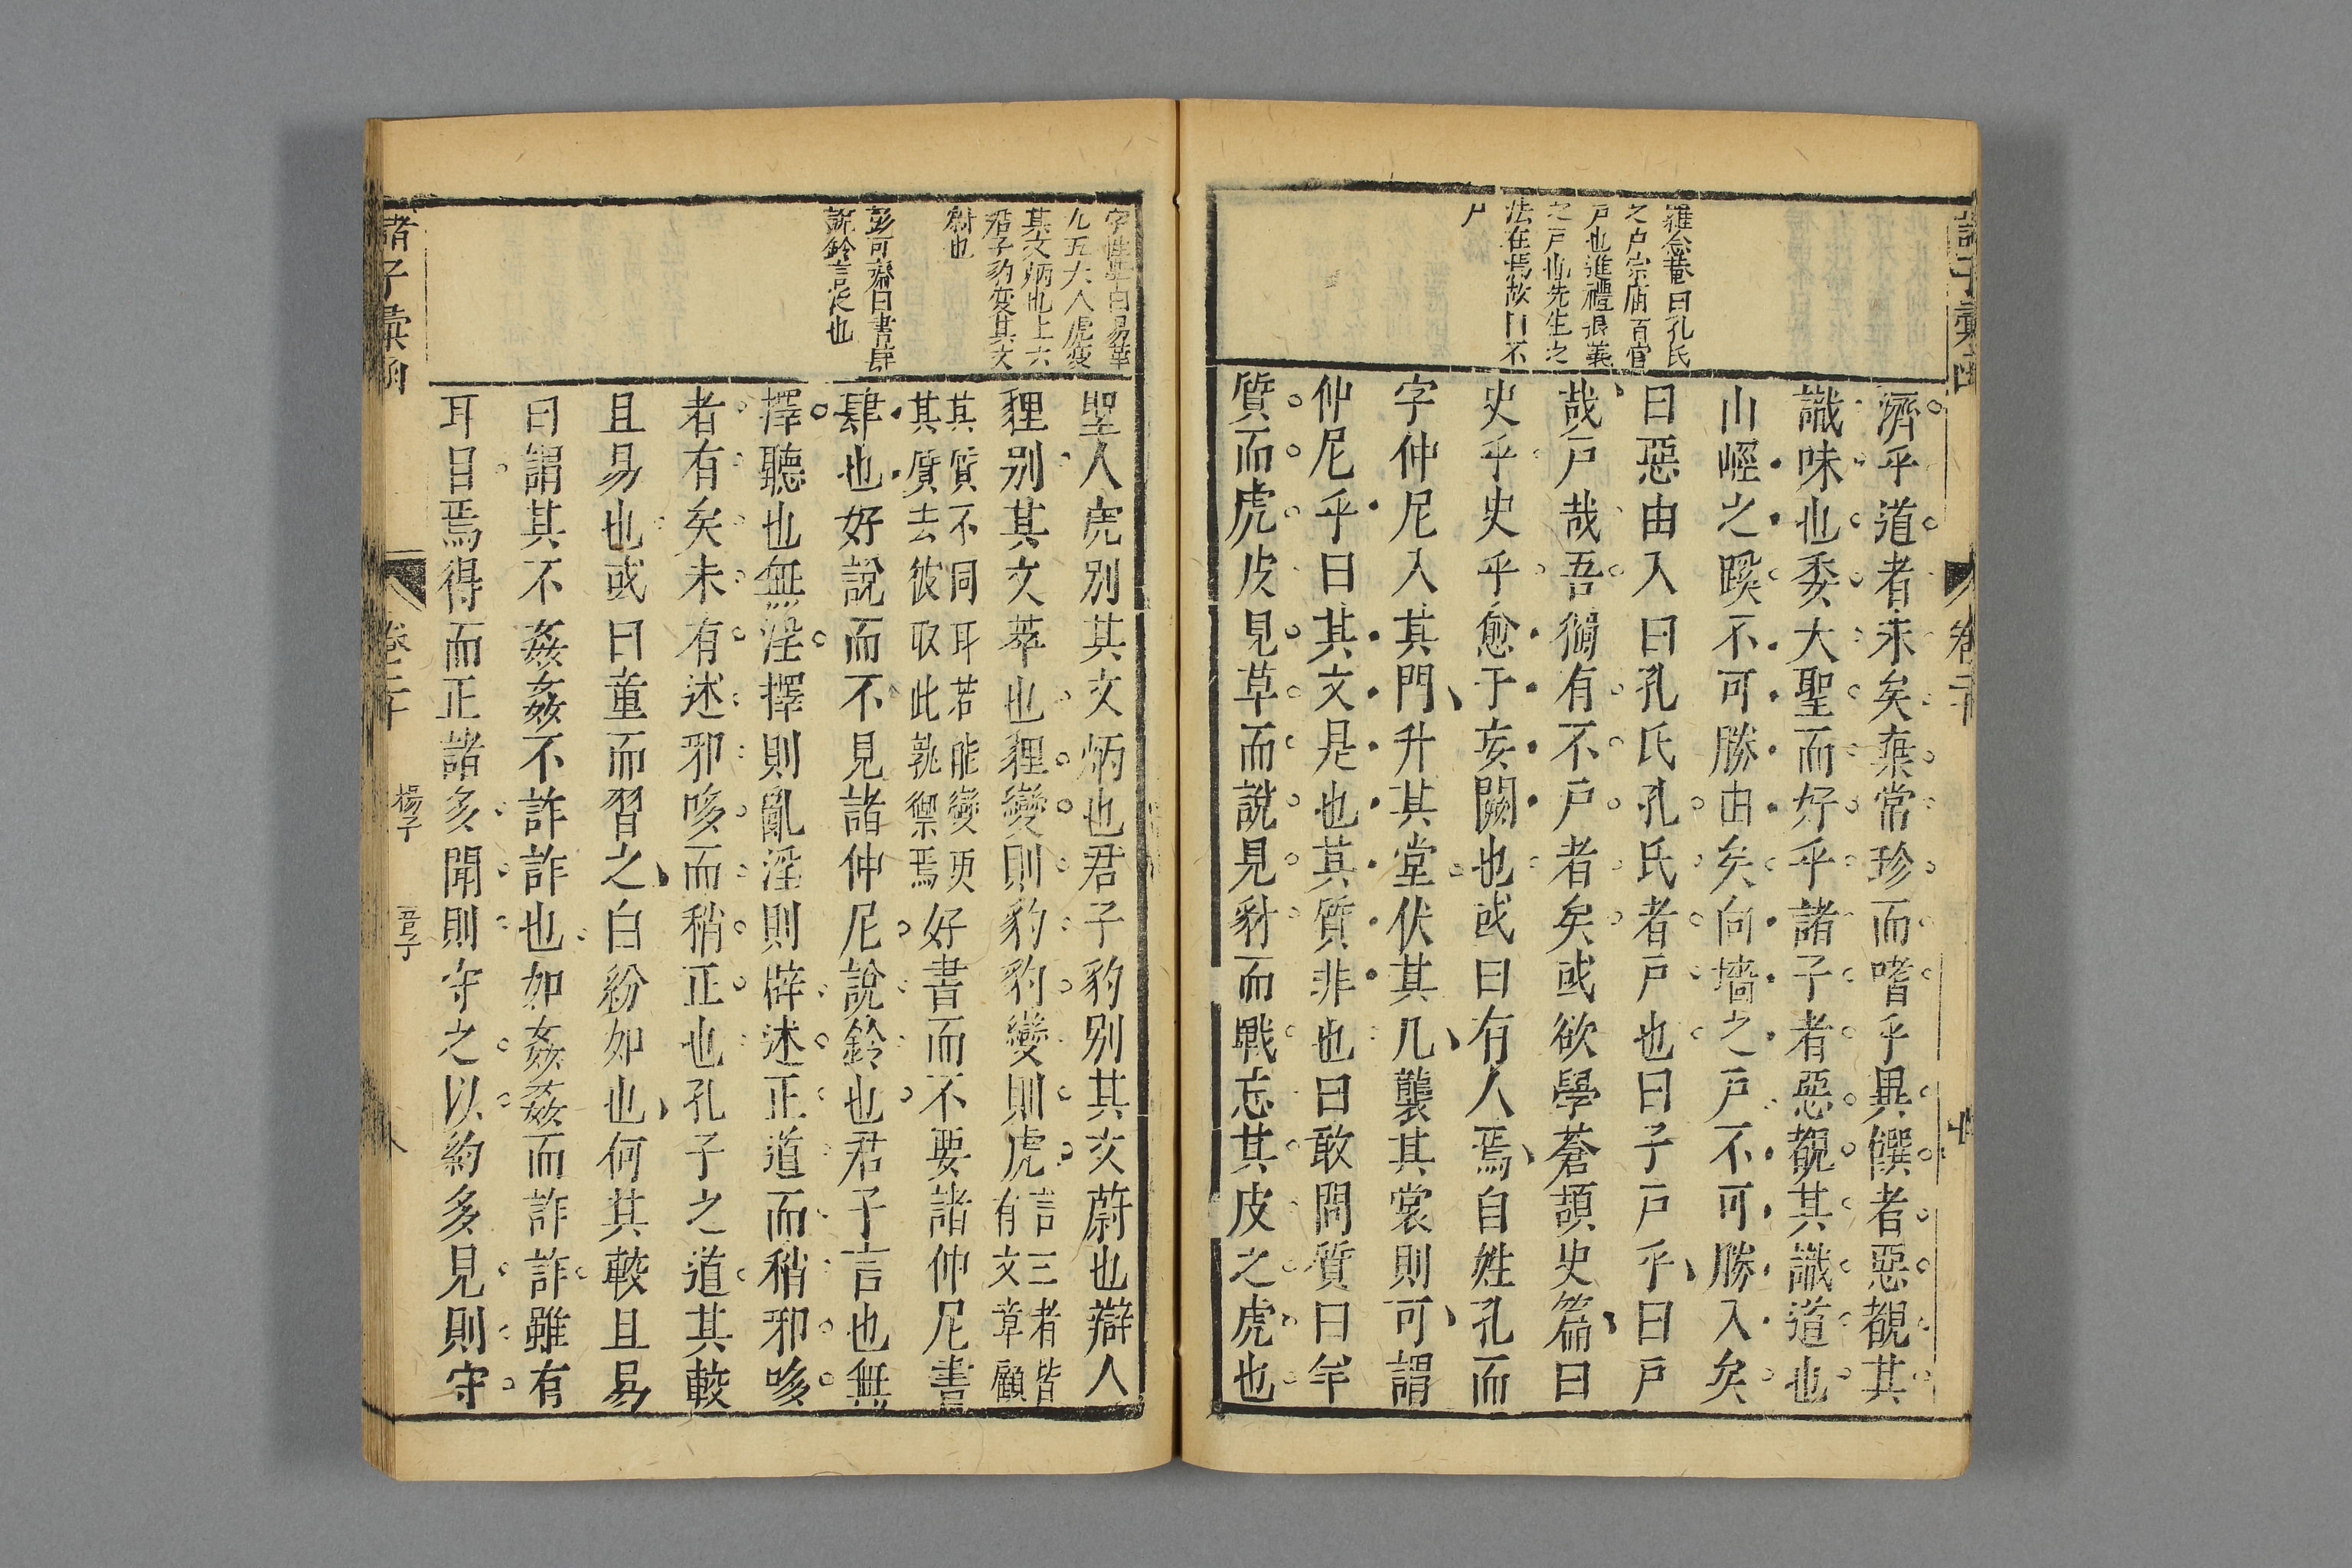 濟乎道者末矣棄常珍而嗜乎異饌者惡覩其
識味也委大聖而好乎諸子者惡覩其識道也
山徑之蹊不可勝由矣向墻之戶不可勝入矣
曰惡由入曰孔氏孔氏者戶也曰子戶乎曰戶
哉戶哉吾獨有不戶者矣或欲學蒼頡史篇曰
史乎史乎愈于妄闕也或曰有人焉自姓孔而
字仲尼入其門升其堂伏其几襲其裳則可謂
仲尼乎曰其文是也其質非也曰敢問質曰羊
質而虎皮見草而說見豺而戰忘其皮之虎也
羅念菴曰孔氏
之戶宗庙百官
戶也進禮退義
之戶也先生之
法在焉故曰不
戶
聖人虎別其文炳也君子豹別其文蔚也辯人
狸別其文萃也狸變則豹豹變則虎言三者皆
有文章顧
其質不同耳若能變更
其質去彼取此孰禦焉好書而不要諸仲尼書
肆也好說而不見諸仲尼說鈴也君子言也無
擇聽也無淫擇則亂淫則辟述正道而稍邪哆
者有矣未有述邪哆而稍正也孔子之道其較
且易也或曰童而習之白紛如也何其較且易
曰謂其不姦姦不詐詐也如姦姦而詐詐雖有
耳目焉得而正諸多聞則守之以約多見則守
九五大人虎变
其文炳也上六
君子豹变其文
蔚也
彭可齋曰書肆
說鈴言小也
諸子彙函
卷二十
楊子